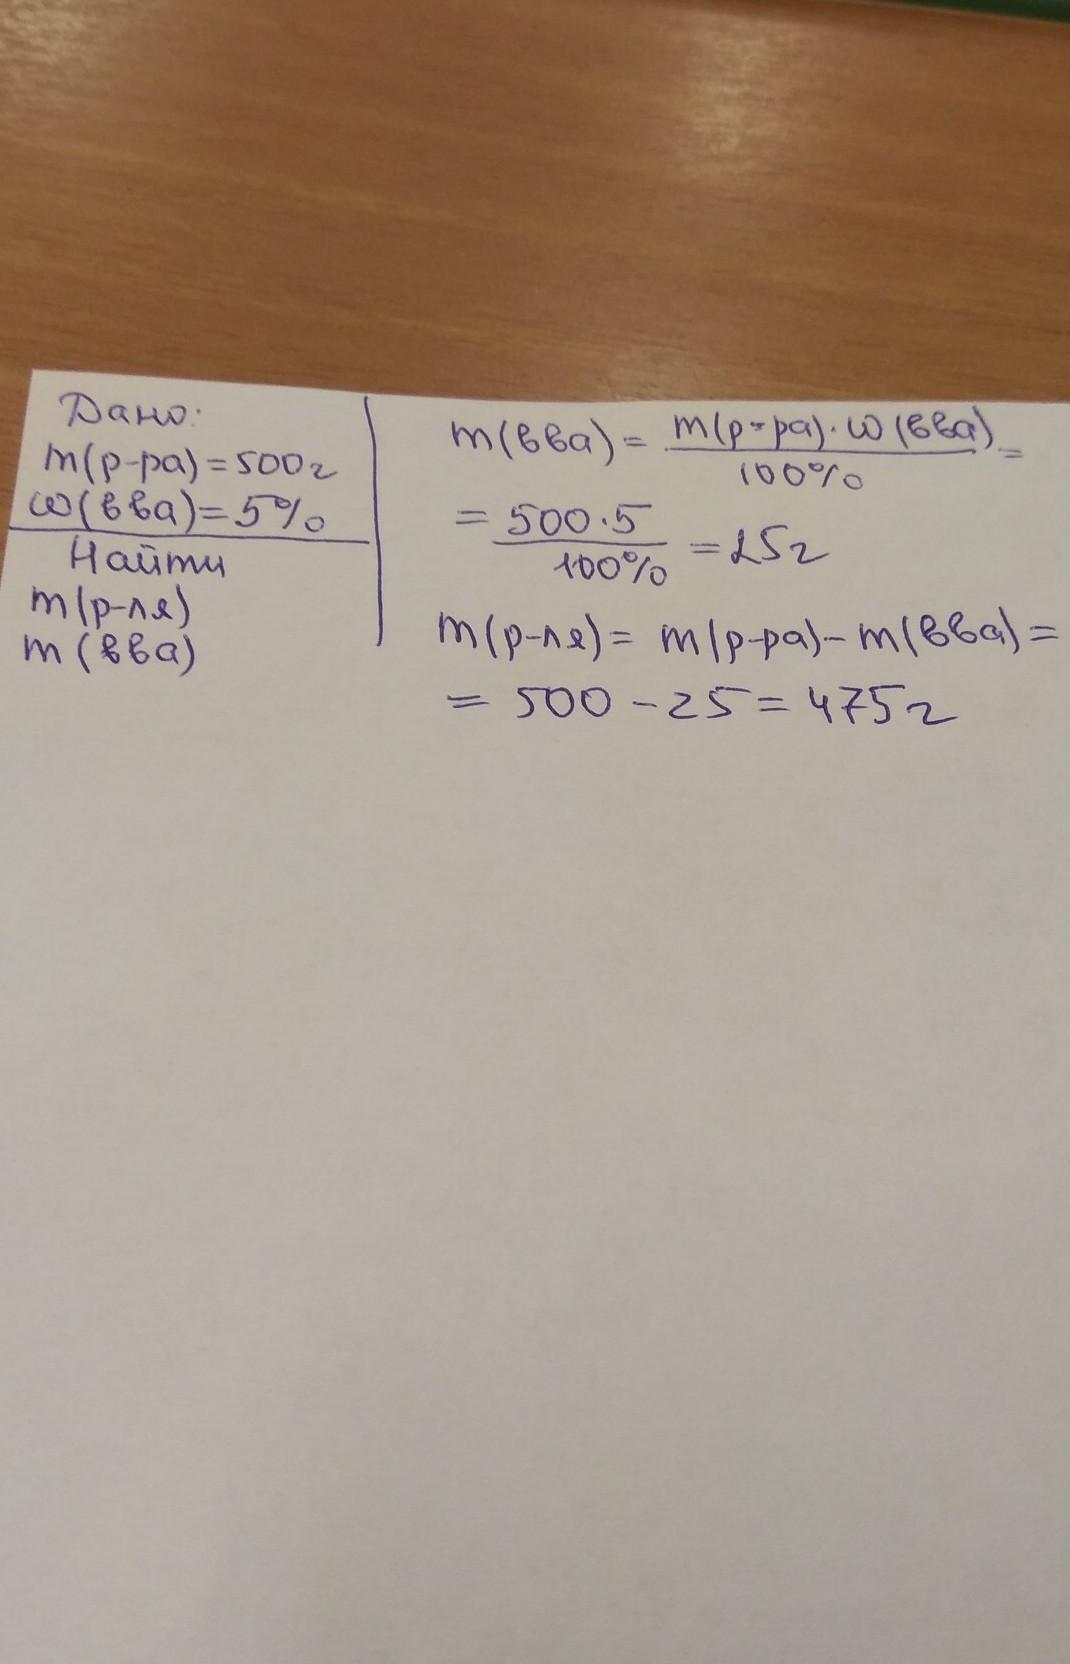 Дано:
m(р-ра)=500г
ω(вва)=5%
Найти
m(р-ля)
m(вва)
m(вва) = m(р-ра)·ω(вва) =
100%
= 500·5 = 25г
100%
m(р-ля) = m(р-ра) – m(вва) =
= 500 – 25 = 475г